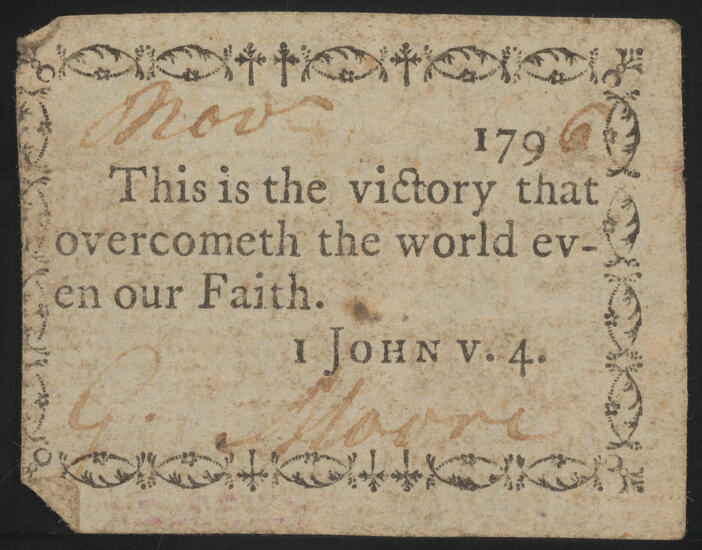 Nov.r 1796
This is the victory that
overcometh the world ev-
en our Faith.
1 JOHN V. 4.
G. Moore